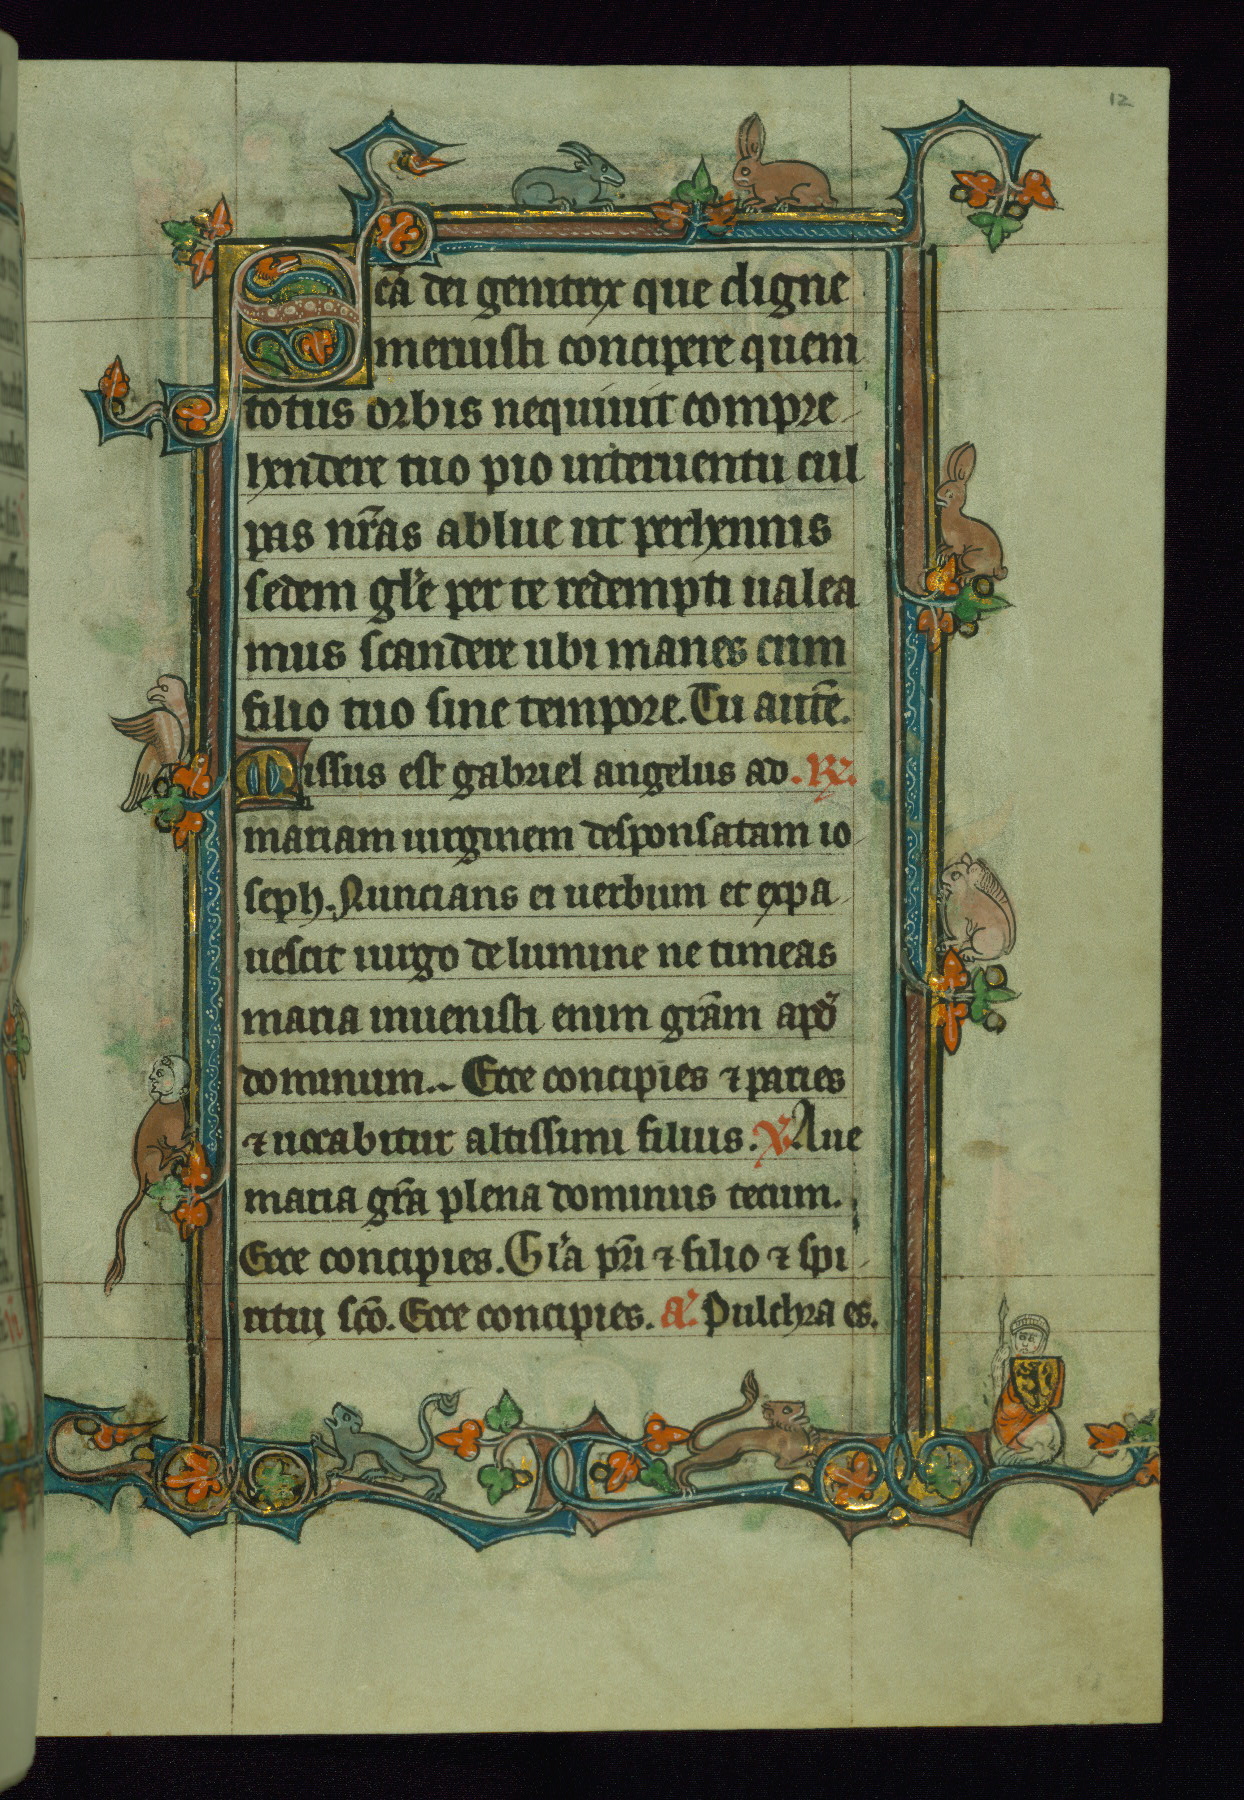 12
Scā dei genitrix que digne
meruisti concipere quem
totus orbis nequiuit compre
hendere tuo pio interuentu cul
pas nr̄as ablue ut perhennis
sedem gl'e per te redempti ualea
mus scandere ubi manes cum
filio tuo sine tempore. Tu autē.
Missus est gabriel angelus ad. R.
mariam uirginem desponsatam io
seph. Nuncians ei uerbum et expa
uescit uirgo de lumine ne timeas
maria inuenisti enim grām apđ
dominum. Ecce concipies ⁊ paries
⁊ uocabitur altissimi filius. V Aue
maria gr̄a plena dominus tecum.
Ecce concipies. Gl'a pr̄i ⁊ filio ⁊ spi
ritui scō. Ecce concipies. a'. Pulchra es.